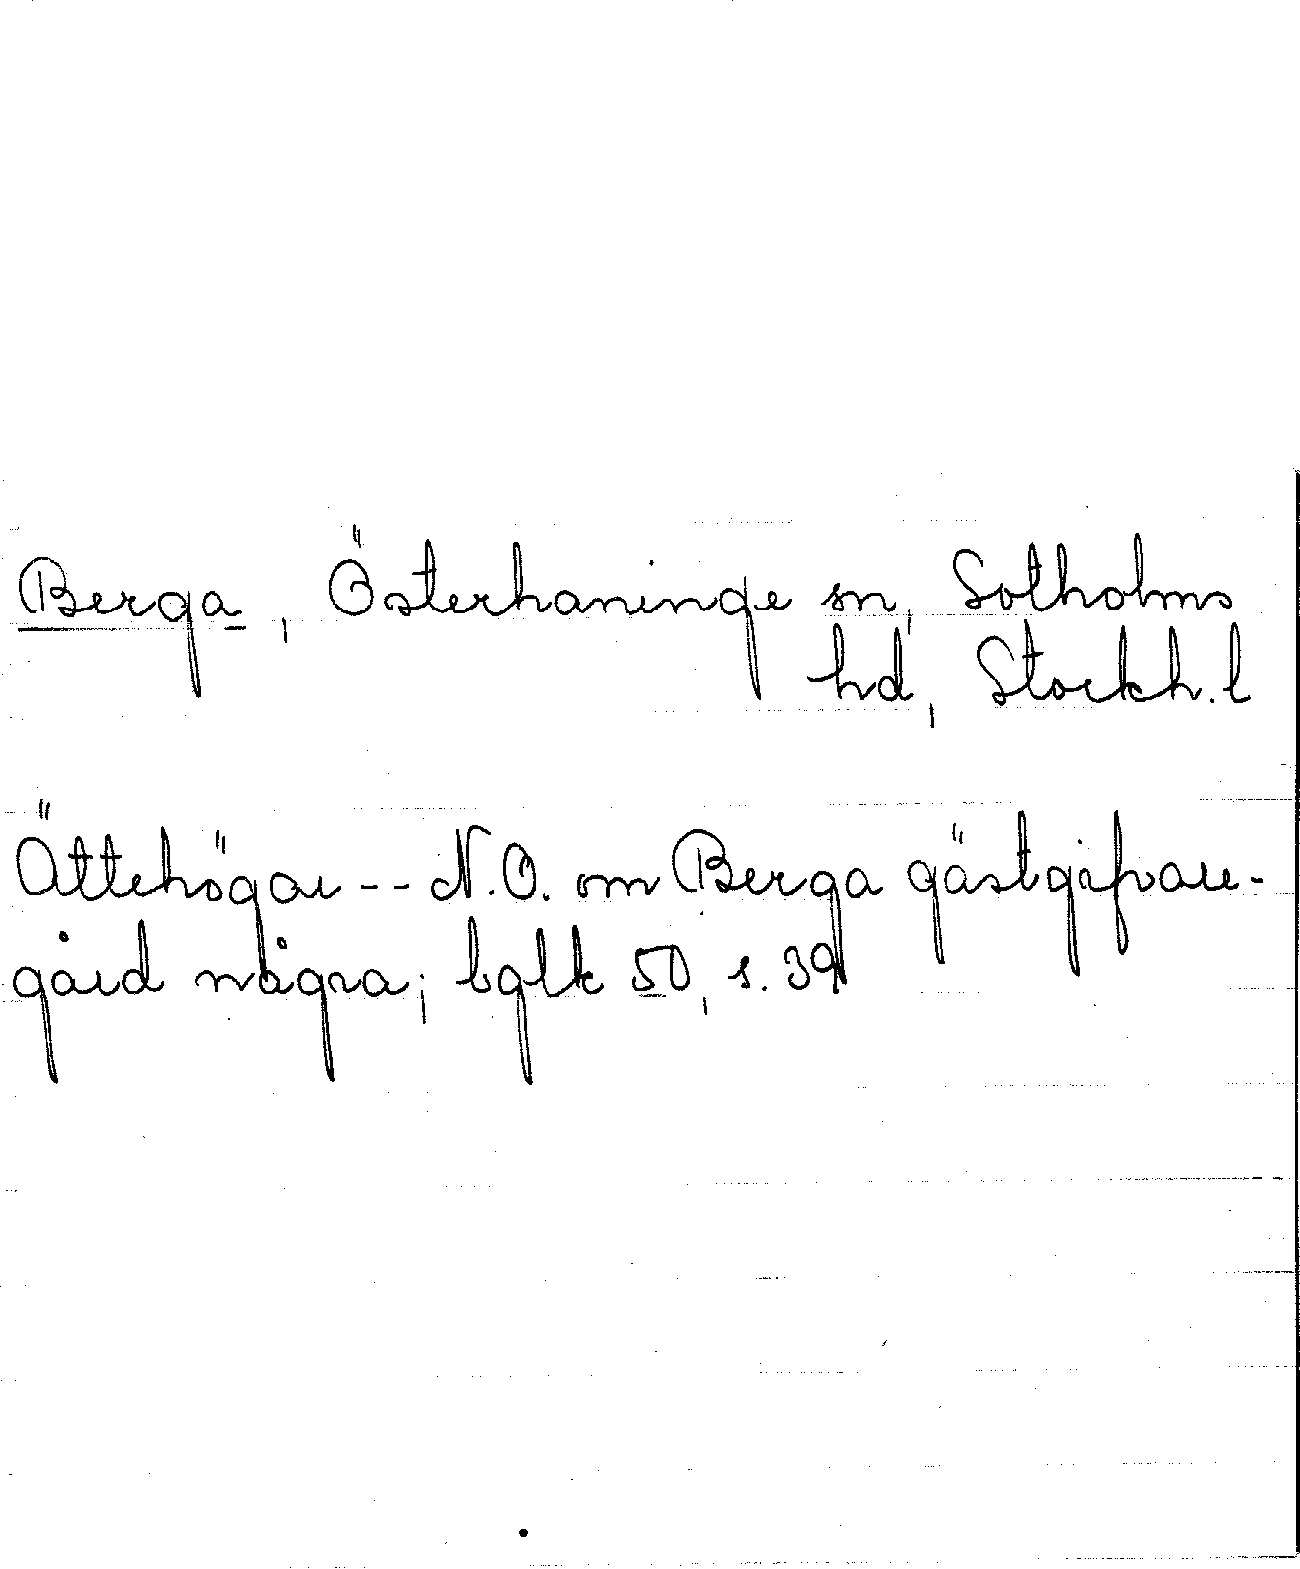 Berga, Österhaninge sn, Sotholms
hd, Stockh. l
Ättehögar -- N.O. om Berga gästgifvare-
gård några; bglk 50, s. 39